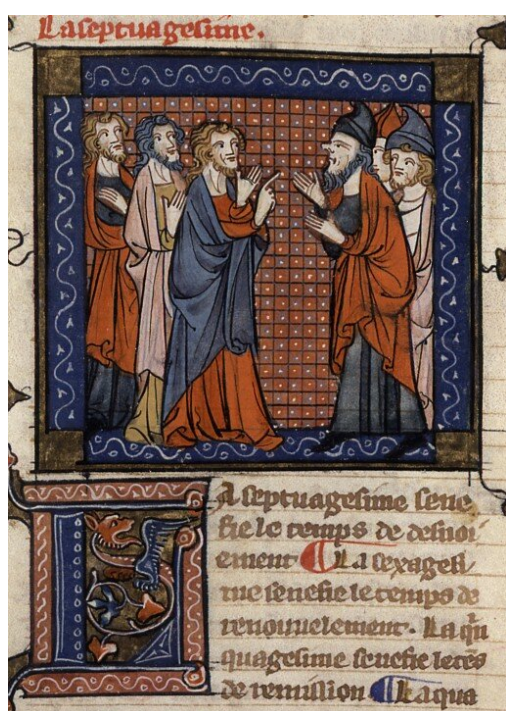 La septuagesime.
LA septuagesime sene
fie le temps de desuoi
ement ¶ La sexagesi
me senefie le temps de
renouuelement. La q̃n
quagesime senefie le tẽs
de remission ¶ La qua